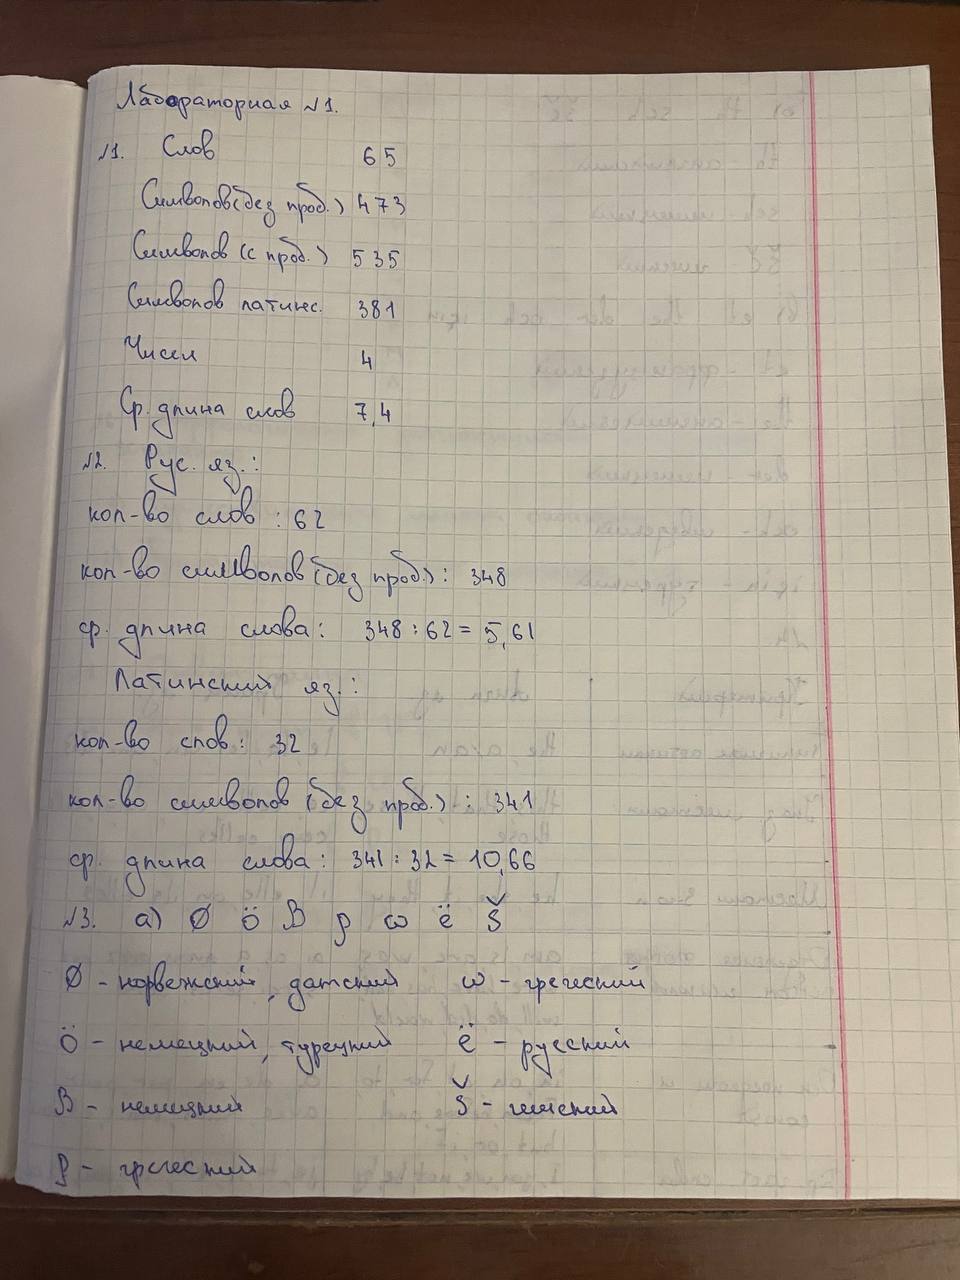 Лабораторная №1.
№1. Слов 65
Символов (без проб.) 473
Символов (с проб.) 535
Символов латинс. 381
Чисел 4
Ср. длина слов 7,4
№2. Рус. яз.:
кол-во слов : 62
кол-во символов (без проб.) : 348
ср. длина слова : 348 : 62 = 5,61
Латинский яз. :
кол-во слов : 32
кол-во символов (без проб.) : 341
ср. длина слова : 341 : 32 = 10,66
№3. а) Ø ö ß ρ ω ё š
Ø - норвежский, датский ω - греческий
ö - немецкий, турецкий ё - русский
ß - немецкий š - чешский
ρ - греческий